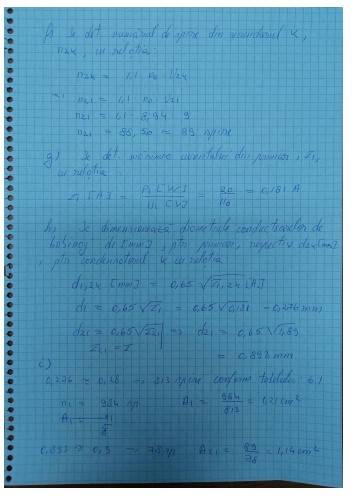 f) Se det. numărul de spire din secundarul k,
n2k, cu relația:
n2k = 1,1 · n0 · U2k
n21 = 1,1 · n0 · U21
n21 = 1,1 · 8,94 · 9
n21 = 88,50 ≈ 89 spire
g) Se det. mărimea curentului din primar, I1,
cu relația
I1 [A] = P1 [W] / U1 [V] = 20 / 110 = 0,181 A
h) Se dimensionează diametrele conductoarelor de
bobinaj d1 [mm], ptr. primar, respectiv d2k [mm]
, ptr. k cu relația
d1,2k [mm] = 0,65 √I1,2k [A]
d1 = 0,65 √I1 = 0,65 √0,181 = 0,276 mm
d21 = 0,65 √I21 => d21 = 0,65 √1,89
I21 = I
= 0,893 mm
i)
0,276 ≈ 0,28 → 813 spire conform tabelului 6.1
n1 = 984 sp A1 = 984 / 813 = 1,21 cm²
A1 =
0,893 ≈ 0,9 → 78 sp A21 = 89 / 78 = 1,14 cm²